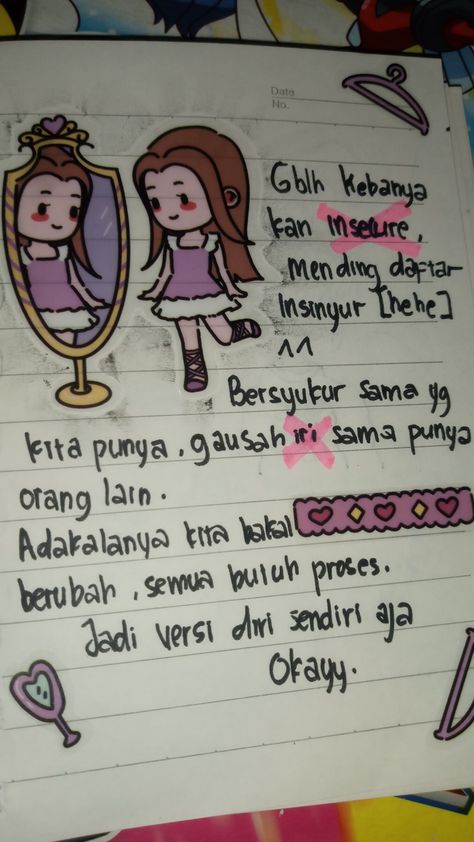 Date
No.
Gblh kebanya
kan insecure,
mending daftar
Insinyur [hehe]
^^
Bersyukur sama yg
kita punya, gausah iri sama punya
orang lain.
Adakalanya kita bakal
berubah, semua butuh proses.
Jadi versi diri sendiri aja
Okayy.